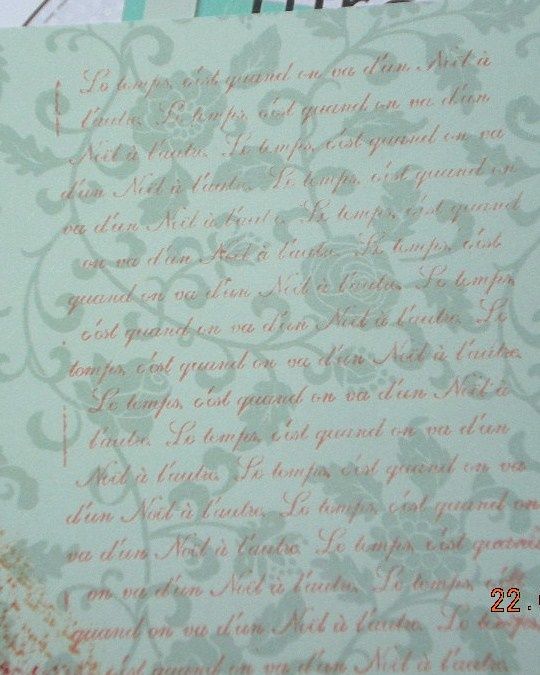 Le temps, c'est quand on va d'un Noël à
l'autre. Le temps, c'est quand on va d'un
Noël à l'autre. Le temps, c'est quand on va
d'un Noël à l'autre. Le temps, c'est quand on
va d'un Noël à l'autre. Le temps, c'est quand
on va d'un Noël à l'autre. Le temps, c'est
quand on va d'un Noël à l'autre. Le temps,
c'est quand on va d'un Noël à l'autre. Le
temps, c'est quand on va d'un Noël à l'autre.
Le temps, c'est quand on va d'un Noël à
l'autre. Le temps, c'est quand on va d'un
Noël à l'autre. Le temps, c'est quand on va
d'un Noël à l'autre. Le temps, c'est quand on
va d'un Noël à l'autre. Le temps, c'est quand
on va d'un Noël à l'autre. Le temps, c'est
22.
quand on va d'un Noël à l'autre. Le temps,
c'est quand on va d'un Noël à l'autre. Le